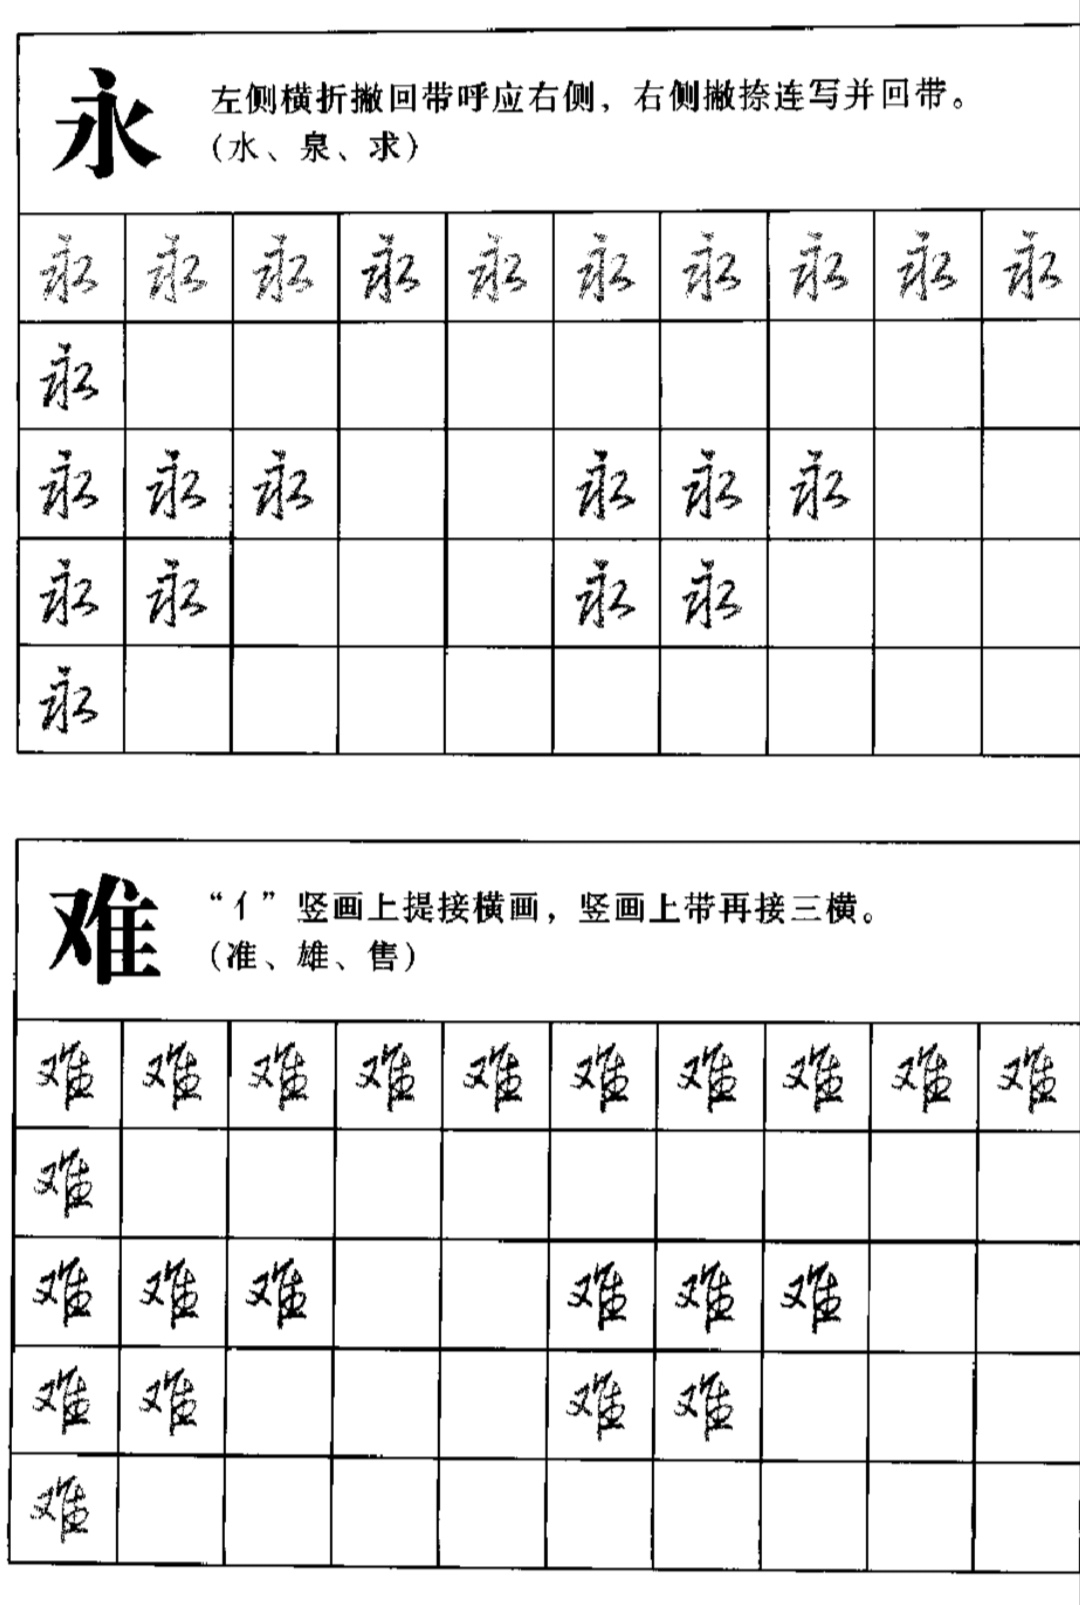 永
左侧横折撇回带呼应右侧，右侧撇捺连写并回带。
（水、泉、求）
永 永 永 永 永 永 永 永 永 永
永
永 永 永 永 永 永
永 永 永 永
永
难
“亻”竖画上提接横画，竖画上带再接三横。
（准、雄、售）
难 难 难 难 难 难 难 难 难 难
难
难 难 难 难 难 难
难 难 难 难
难